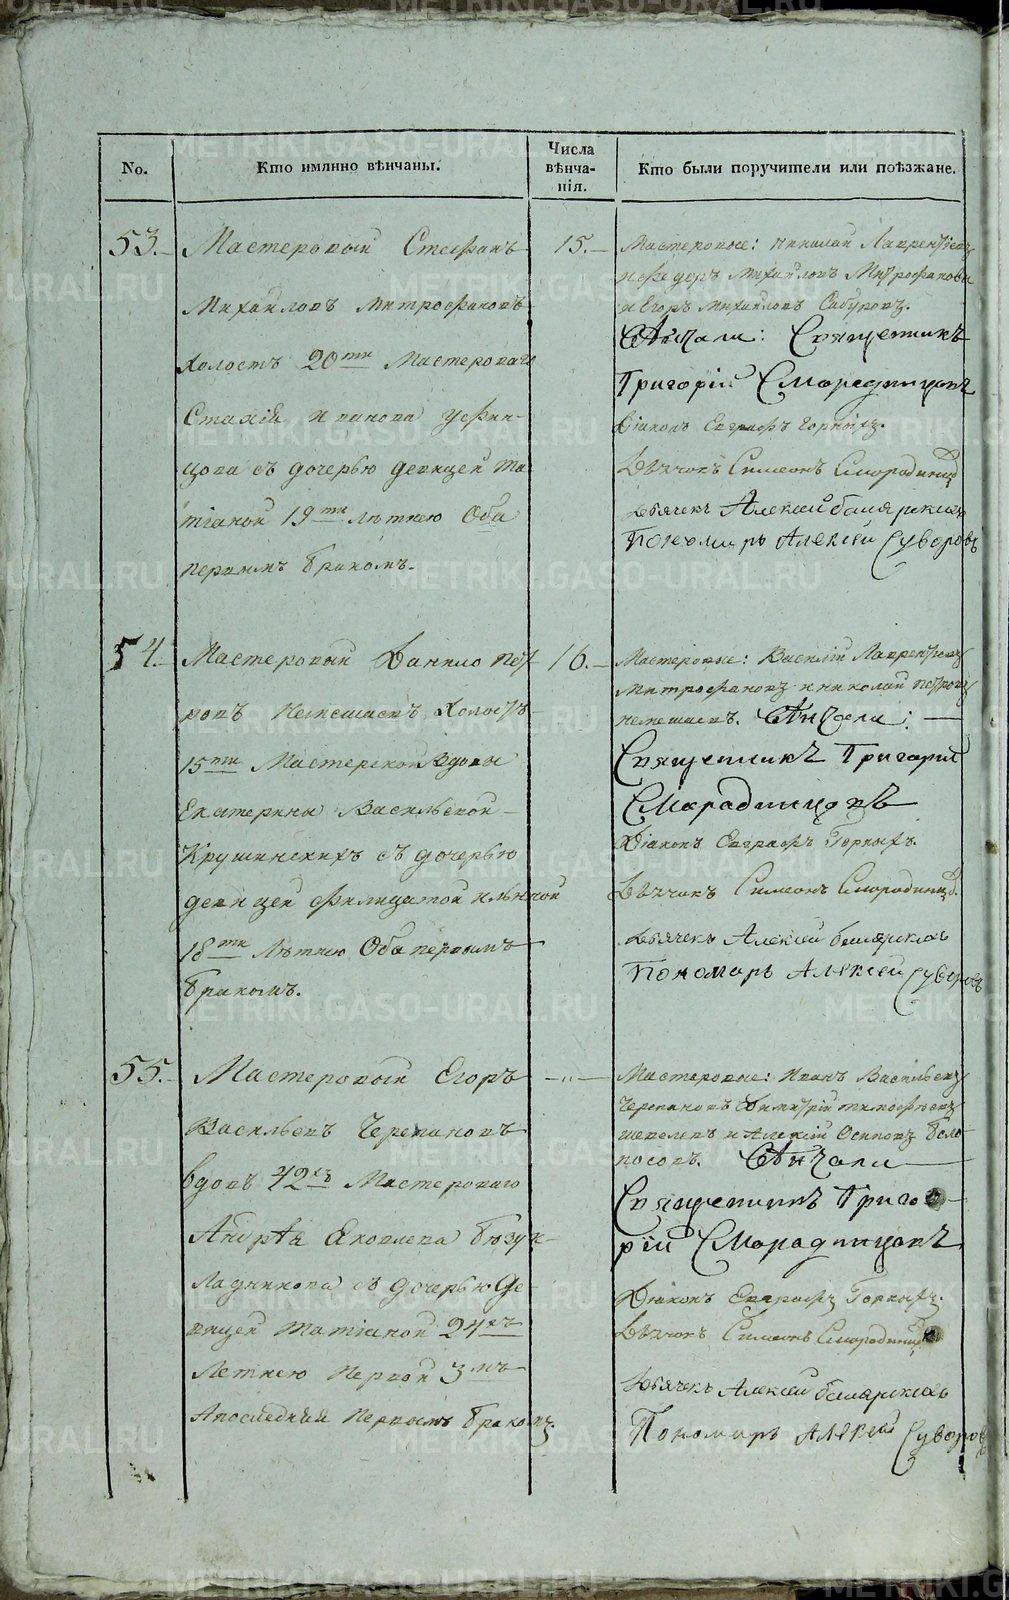 No.
Кто имянно вѣнчаны.
Числа
вѣнча-
нія.
Кто были поручители или поѣзжане.
53.-
Мастеровый Стефанъ
Михайловъ Митрофановъ
Холостъ 20ти Мастероваго
Стахія Иванова Уфин-
цова съ дочерью девицей Та-
тіаной 19ти Лѣтнею Оба
первымъ бракомъ.
15.-
Мастеровые: Николай Лаврентіевъ
и Федоръ Михайловъ Митрофановы
и Егоръ Михайловъ Сабуровъ.
Вѣнчали: Священникъ
Григорій Смородинцовъ
Діаконъ Евграфъ Горныхъ.
Дьячокъ Симеонъ Смородинц
Дьячекъ Алексей
Пономарь Алексей Суворовъ
54.-
Мастеровый Данило Пет
ровъ Немешаевъ Холостъ-
15ти Мастерской Вдовы
Екатерины Васильевой-
Крушинскихъ съ дочерью
девицей Филицатой Ильиной
18ти Лѣтнею Оба первымъ
бракомъ.
16.-
Мастеровые: Василій Лаврентіевъ
Митрофановъ и Николай Петровъ
Немешаевъ. Вѣнчали: —
Священникъ Григорій
Смородинцовъ
Діаконъ Евграфъ Горныхъ.
Дьячокъ Симеонъ Смородинцо.
Дьячекъ Алексей
Пономарь Алексей Суворовъ
55.-
Мастеровый Егоръ
Васильевъ Черепановъ
Вдовъ 42хъ Мастероваго
Андрѣя Яковлева
съ дочерью Де-
вицей Татіаной 24хъ
Летнею Первой 3мъ
Апоследний Первымъ бракомъ.
-"-
Мастеровые: Иванъ Васильевъ
Черепановъ Димитрій Тимофѣевъ
Шевелевъ и Алексій Осиповъ Бело-
носовъ. Вѣнчали —
Священникъ Григо-
рій Смородинцовъ
Діаконъ Евграфъ Горныхъ.
Дьячокъ Симеонъ Смородинц
Дьячекъ Алексей
Пономарь Алексей Суворовъ
METRIKI.GASO-URAL.RU